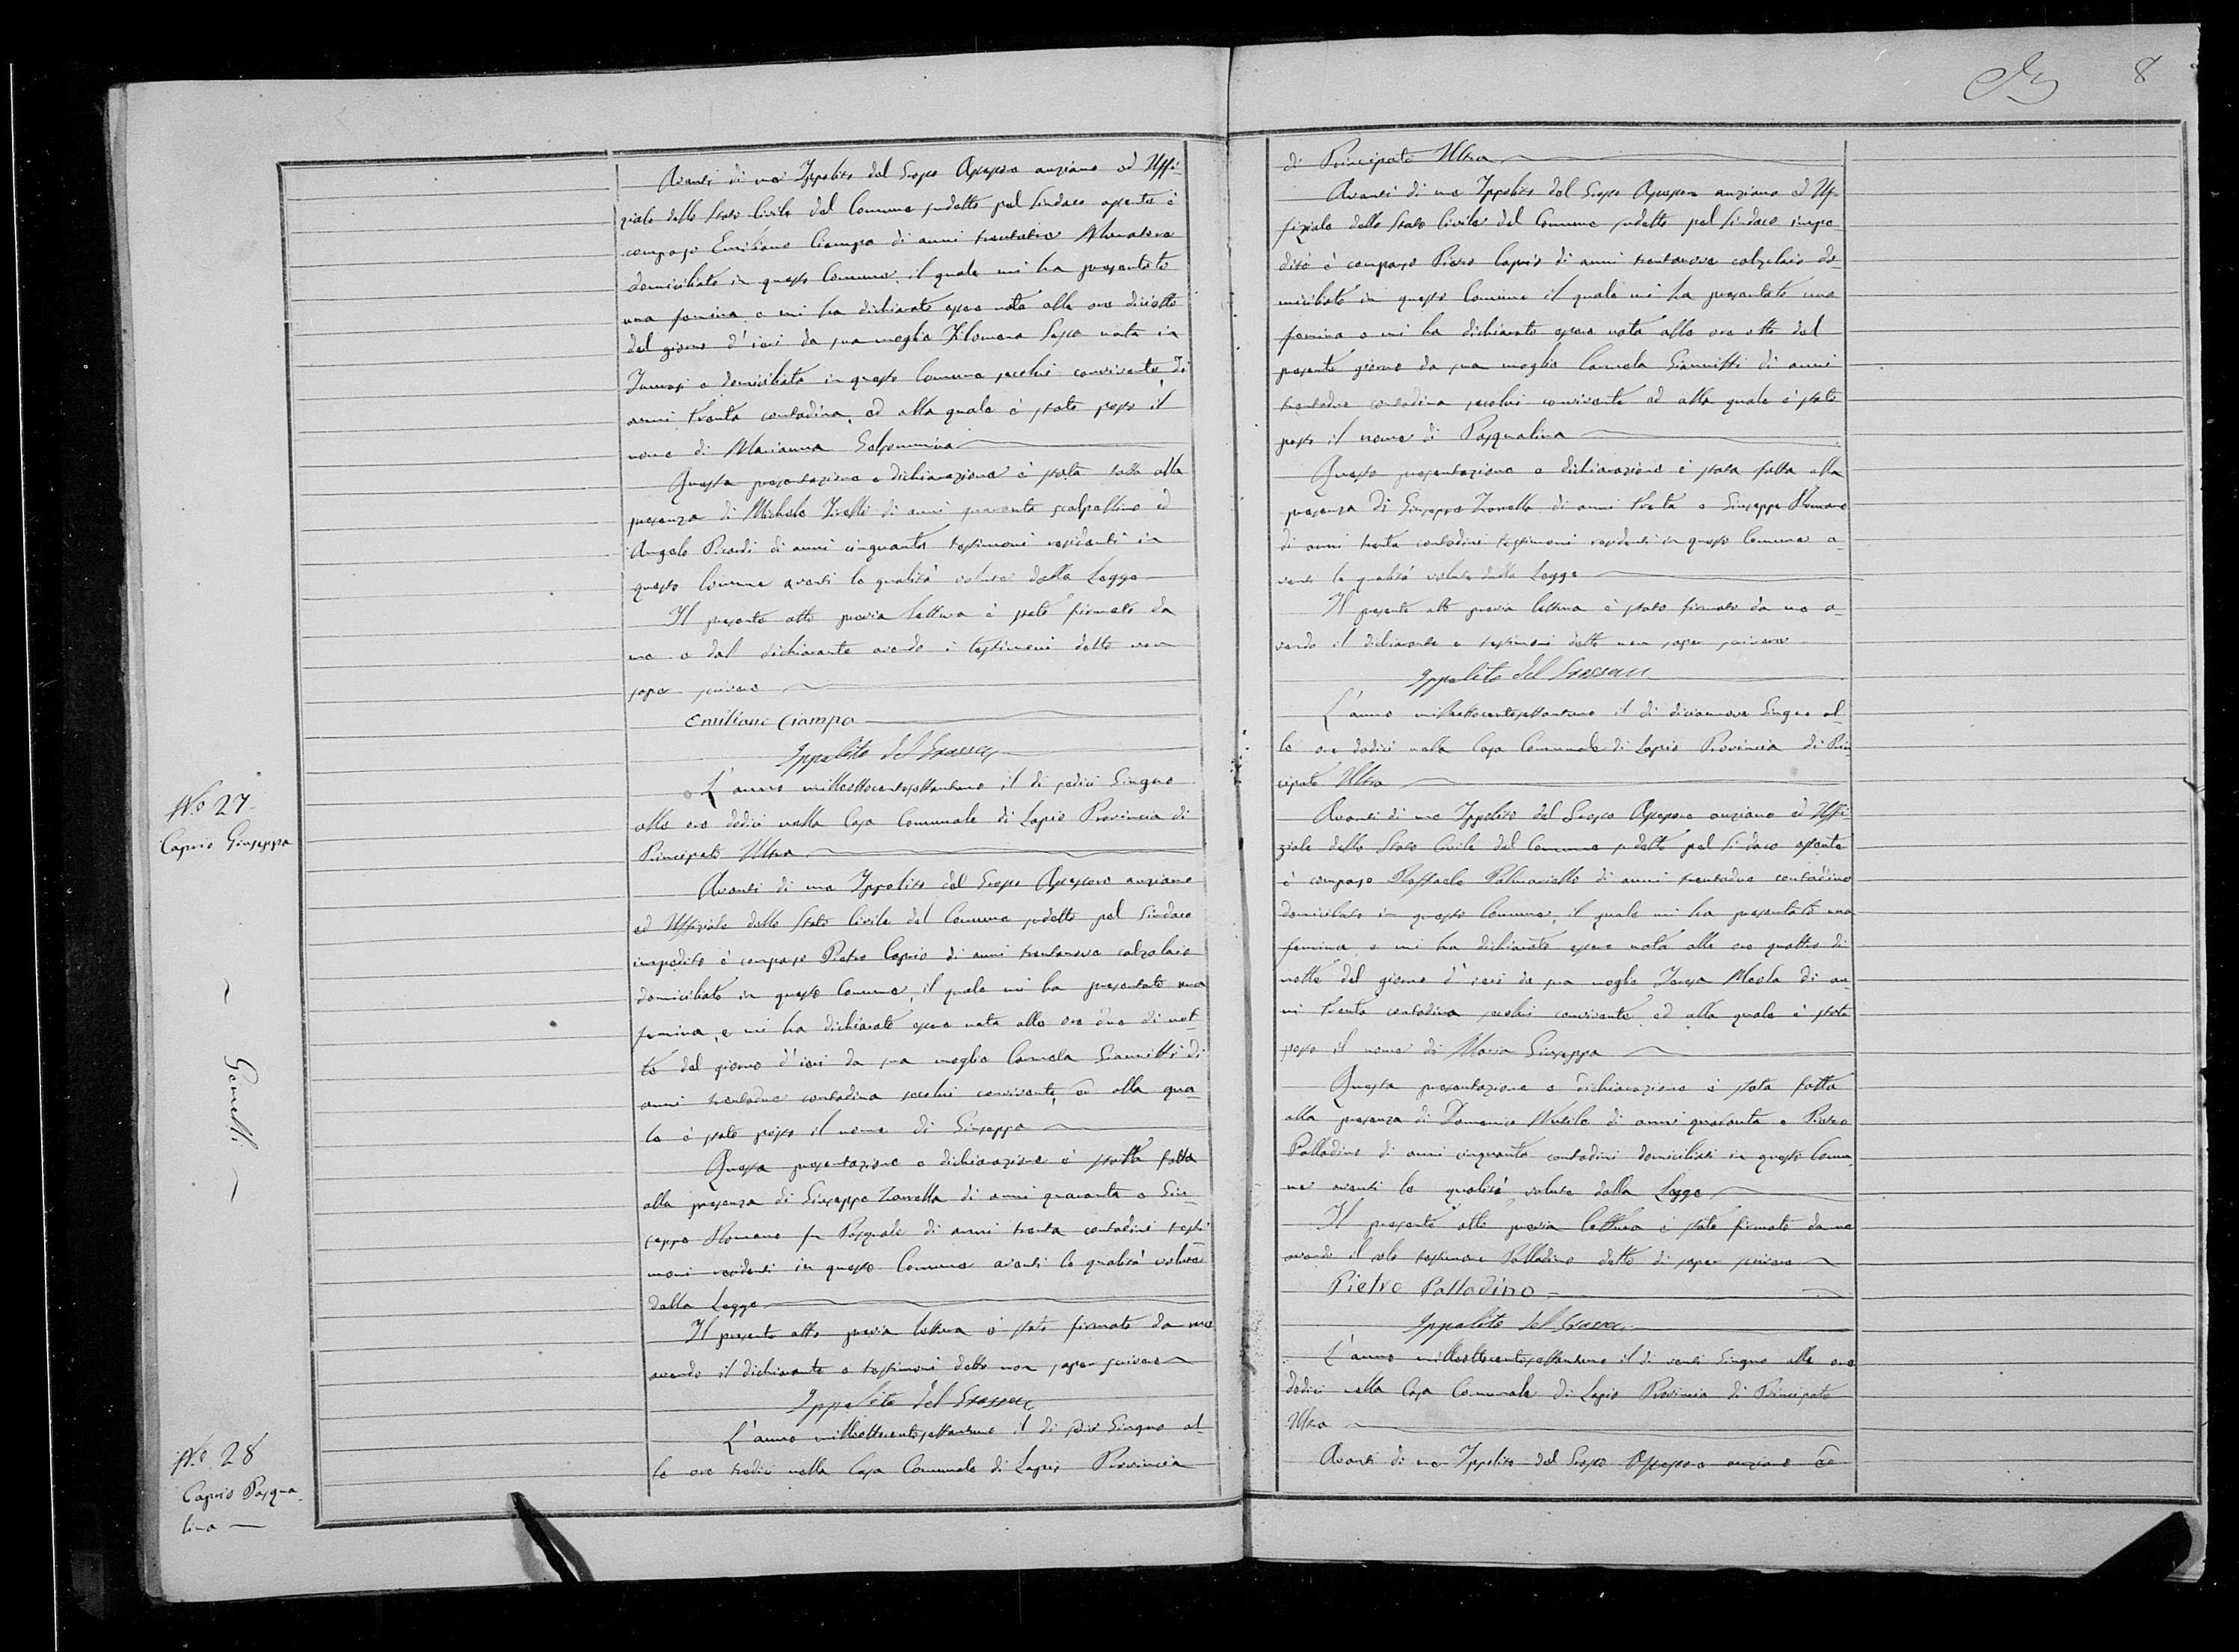 8
Avanti di me Ippolito del Grosso Assessore anziano ed Uffi-
ziale dello Stato Civile del Comune sudetto pel Sindaco assente è
comparso Emiliano Ciampo di anni trentatre Muratore
domiciliato in questo Comune, il quale mi ha presentato
una femina e mi ha dichiarato essere nata alle ore diciotto
del giorno d'ieri da sua moglie Filomena Sesso nata in
e domiciliata in questo Comune secolui convivente di
anni trenta contadina, ed alla quale è stato posto il
nome di Marianna Gelsommina
Questa presentazione e dichiarazione è stata fatta alla
presenza di Michele di anni quaranta scalpellino ed
Angelo Picardi di anni cinquanta testimoni residenti in
questo Comune aventi le qualità volute dalla Legge
Il presente atto previa lettura è stato firmato da
me e dal dichiarante avendo i testimoni detto non
saper scrivere
Emiliano Ciampo
Ippolito del Grosso
No 27
Caprio Giuseppa
L'anno milleottocentosettantuno il di sedici Giugno
alle ore dodici nella Casa Comunale di Lapio Provincia di
Principato Ultra
Avanti di me Ippolito del Grosso Assessore anziano
ed Uffiziale dello Stato Civile del Comune sudetto pel Sindaco
impedito è comparso Pietro Caprio di anni trentanove calzolaio
domiciliato in questo Comune, il quale mi ha presentato una
femina, e mi ha dichiarato essere nata alle ore due di not-
te del giorno d'ieri da sua moglie Carmela Giannitti di
anni trentadue contadina secolui convivente, ed alla qua-
le è stato posto il nome di Giuseppa
Gemelli
Questa presentazione e dichiarazione è stata fatta
alla presenza di Giuseppe Zarrella di anni quaranta e Giu-
seppe Romano fu Pasquale di anni trenta contadini testi
moni residenti in questo Comune aventi le qualità volute
dalla Legge
Il presente atto previa lettura è stato firmato da me
avendo il dichiarante e testimoni detto non saper scrivere
Ippolito del Grosso
No 28
Caprio Pasqua-
lina
L'anno milleottocentosettantuno il di sedici Giugno al-
le ore tredici nella Casa Comunale di Lapio Provincia
di Principato Ultra
Avanti di me Ippolito del Grosso Assessore anziano ed Uf-
fiziale dello Stato Civile del Comune sudetto pel Sindaco impe-
dito è comparso Pietro Caprio di anni trentanove calzolaio do-
miciliato in questo Comune il quale mi ha presentato una
femina e mi ha dichiarato essere nata alle ore otto del
presente giorno da sua moglie Carmela Giannitti di anni
trentadue contadina secolui convivente ed alla quale è stato
posto il nome di Pasqualina
Questa presentazione e dichiarazione è stata fatta alla
presenza di Giuseppe Zarrella di anni trenta e Giuseppe Romano
di anni trenta contadini testimoni residenti in questo Comune a-
venti le qualità volute dalla Legge
Il presente atto previa lettura è stato firmato da me a-
vendo il dichiarante e testimoni detto non saper scrivere
Ippolito del Grosso
L'anno milleottocentosettantuno il di diciannove Giugno al-
le ore dodici nella Casa Comunale di Lapio Provincia di Prin
cipato Ultra
Avanti di me Ippolito del Grosso Assessore anziano ed Uffi-
ziale dello Stato Civile del Comune sudetto pel Sindaco assente
è comparso Raffaele Palmariello di anni trentadue contadino
domiciliato in questo Comune, il quale mi ha presentato una
femina e mi ha dichiarato essere nata alle ore quattro di
notte del giorno d'ieri da sua moglie Teresa Meola di an-
ni trenta contadina secolui convivente ed alla quale è stato
posto il nome di Maria Giuseppa
Questa presentazione e dichiarazione è stata fatta
alla presenza di Domenico di anni quaranta e Pietro
Palladino di anni cinquanta contadini domiciliati in questo Comu-
ne aventi le qualità volute dalla Legge
Il presente atto previa lettura è stato firmato da me
avendo il solo testimone Palladino detto di saper scrivere
Pietro Palladino
Ippolito del Grosso
L'anno milleottocentosettantuno il di venti Giugno alle ore
dodici nella Casa Comunale di Lapio Provincia di Principato
Ultra
Avanti di me Ippolito del Grosso Assessore anziano ed